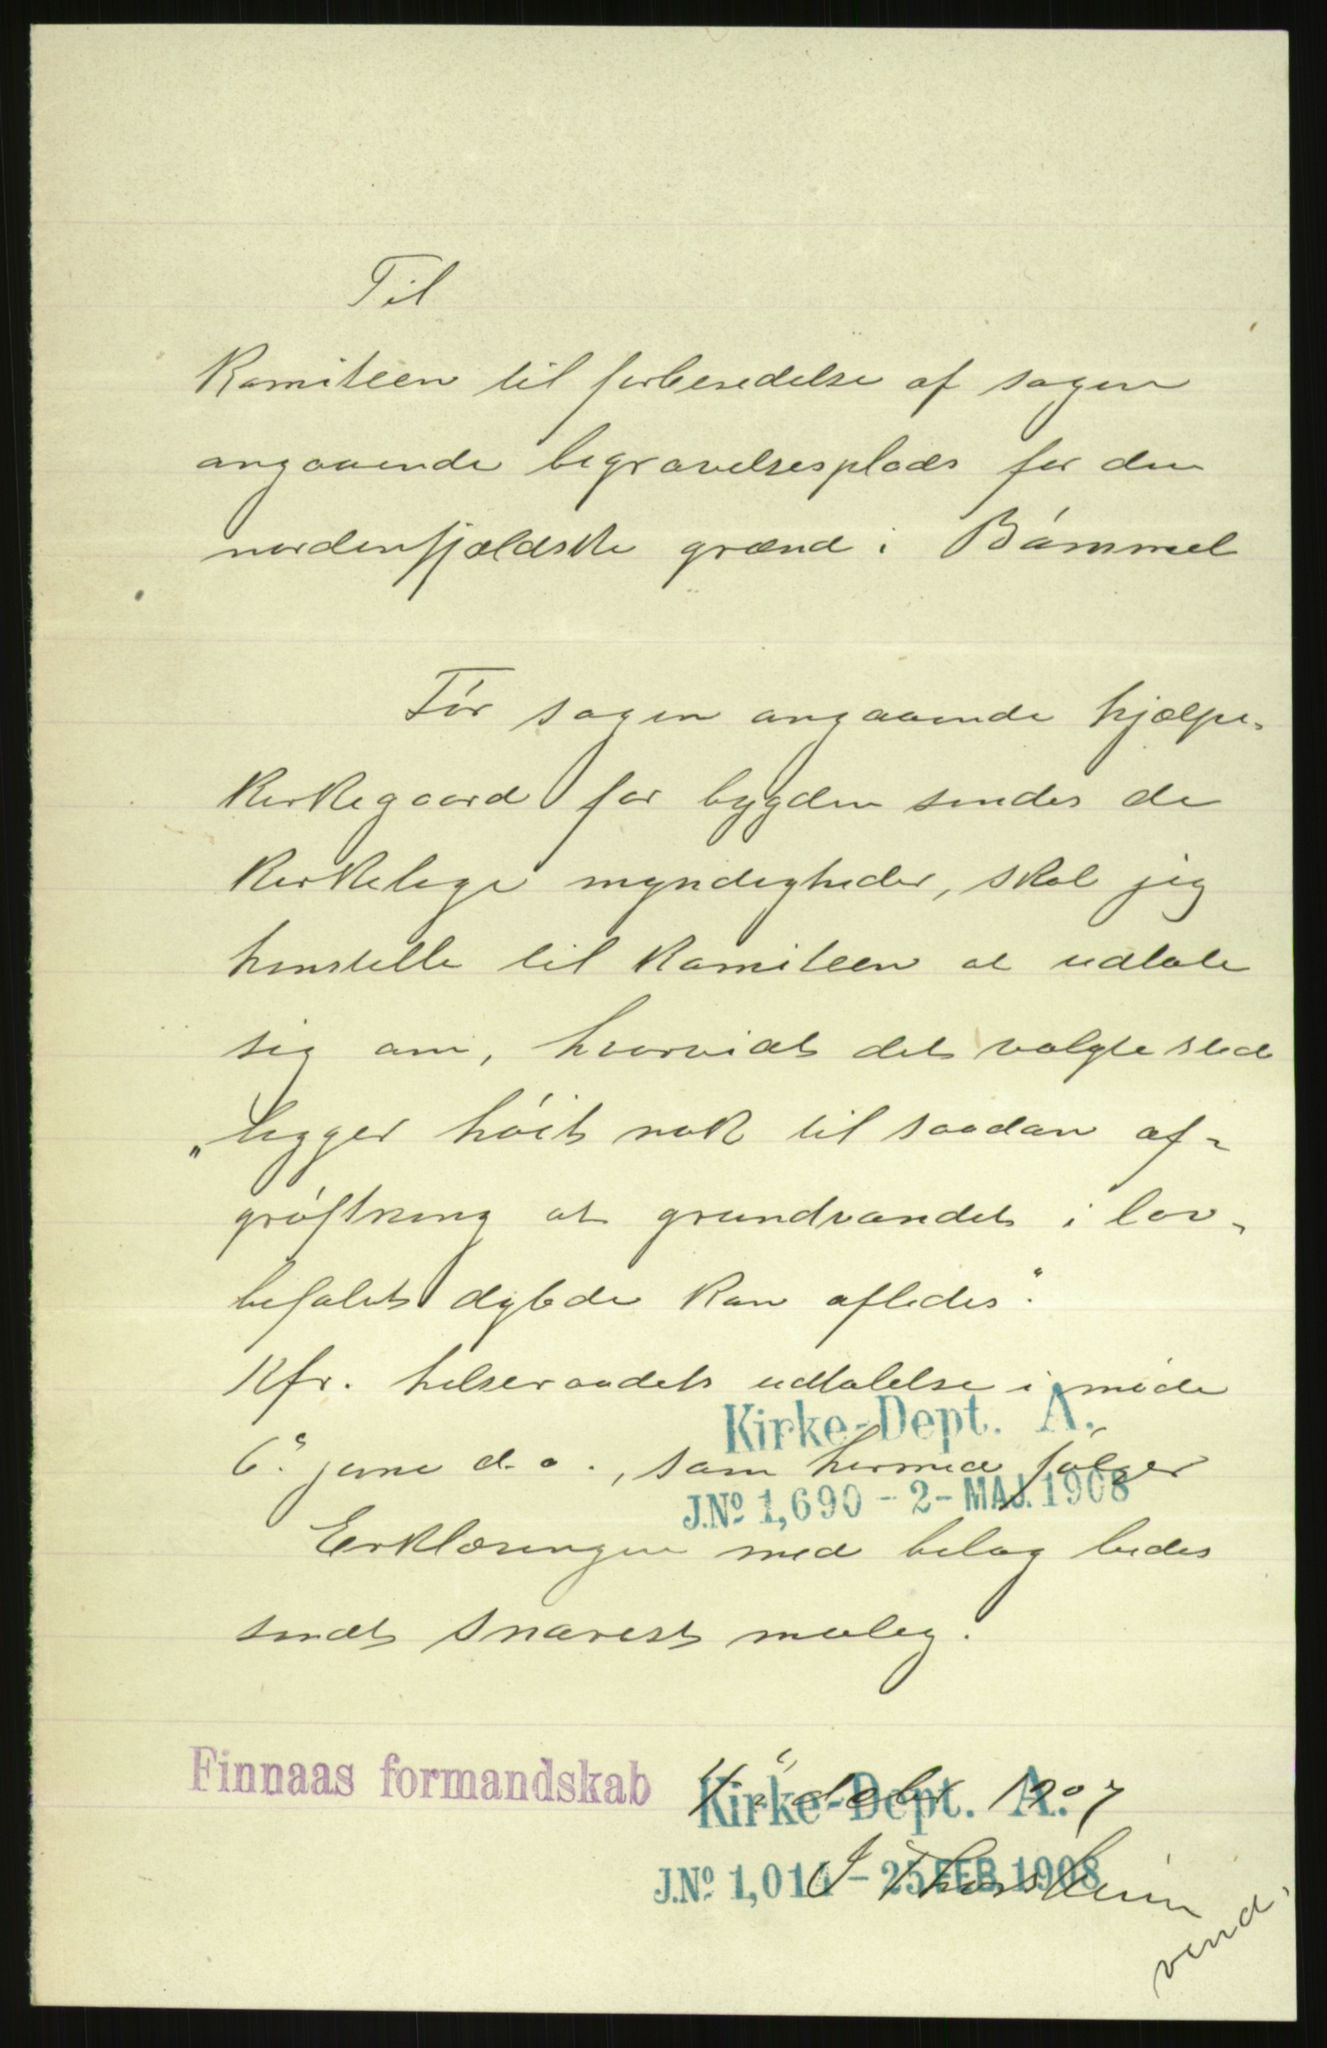 Til
Komiteen til forberedelse af sagen
angaaende begravelsesplads for den
nordenfjeldske grænd i Bømmel
Før sagen angaaende hjælpe-
kirkegaard for bygden sendes de
kirkelige myndigheder, skal jeg
henstille til Komiteen at udtale
sig om, hvorvidt det valgte sted
„ligger høit nok til saadan af-
grøftning at grundvandet i lov-
befalet dybde kan afledes."
Kfr. helseraadets udtalelse i møde
Kirke-Dept. A.
6. juni d.a., som hermed følger
J.No 1,690 - 2 - MAJ. 1908
Erklæringen med bilag bedes
sendt snarest mulig.
Finnaas formandskab decbr 1907
Kirke-Dept. A.
J.No 1,011 - 25 FEB. 1908
J Thorsheim
vend.